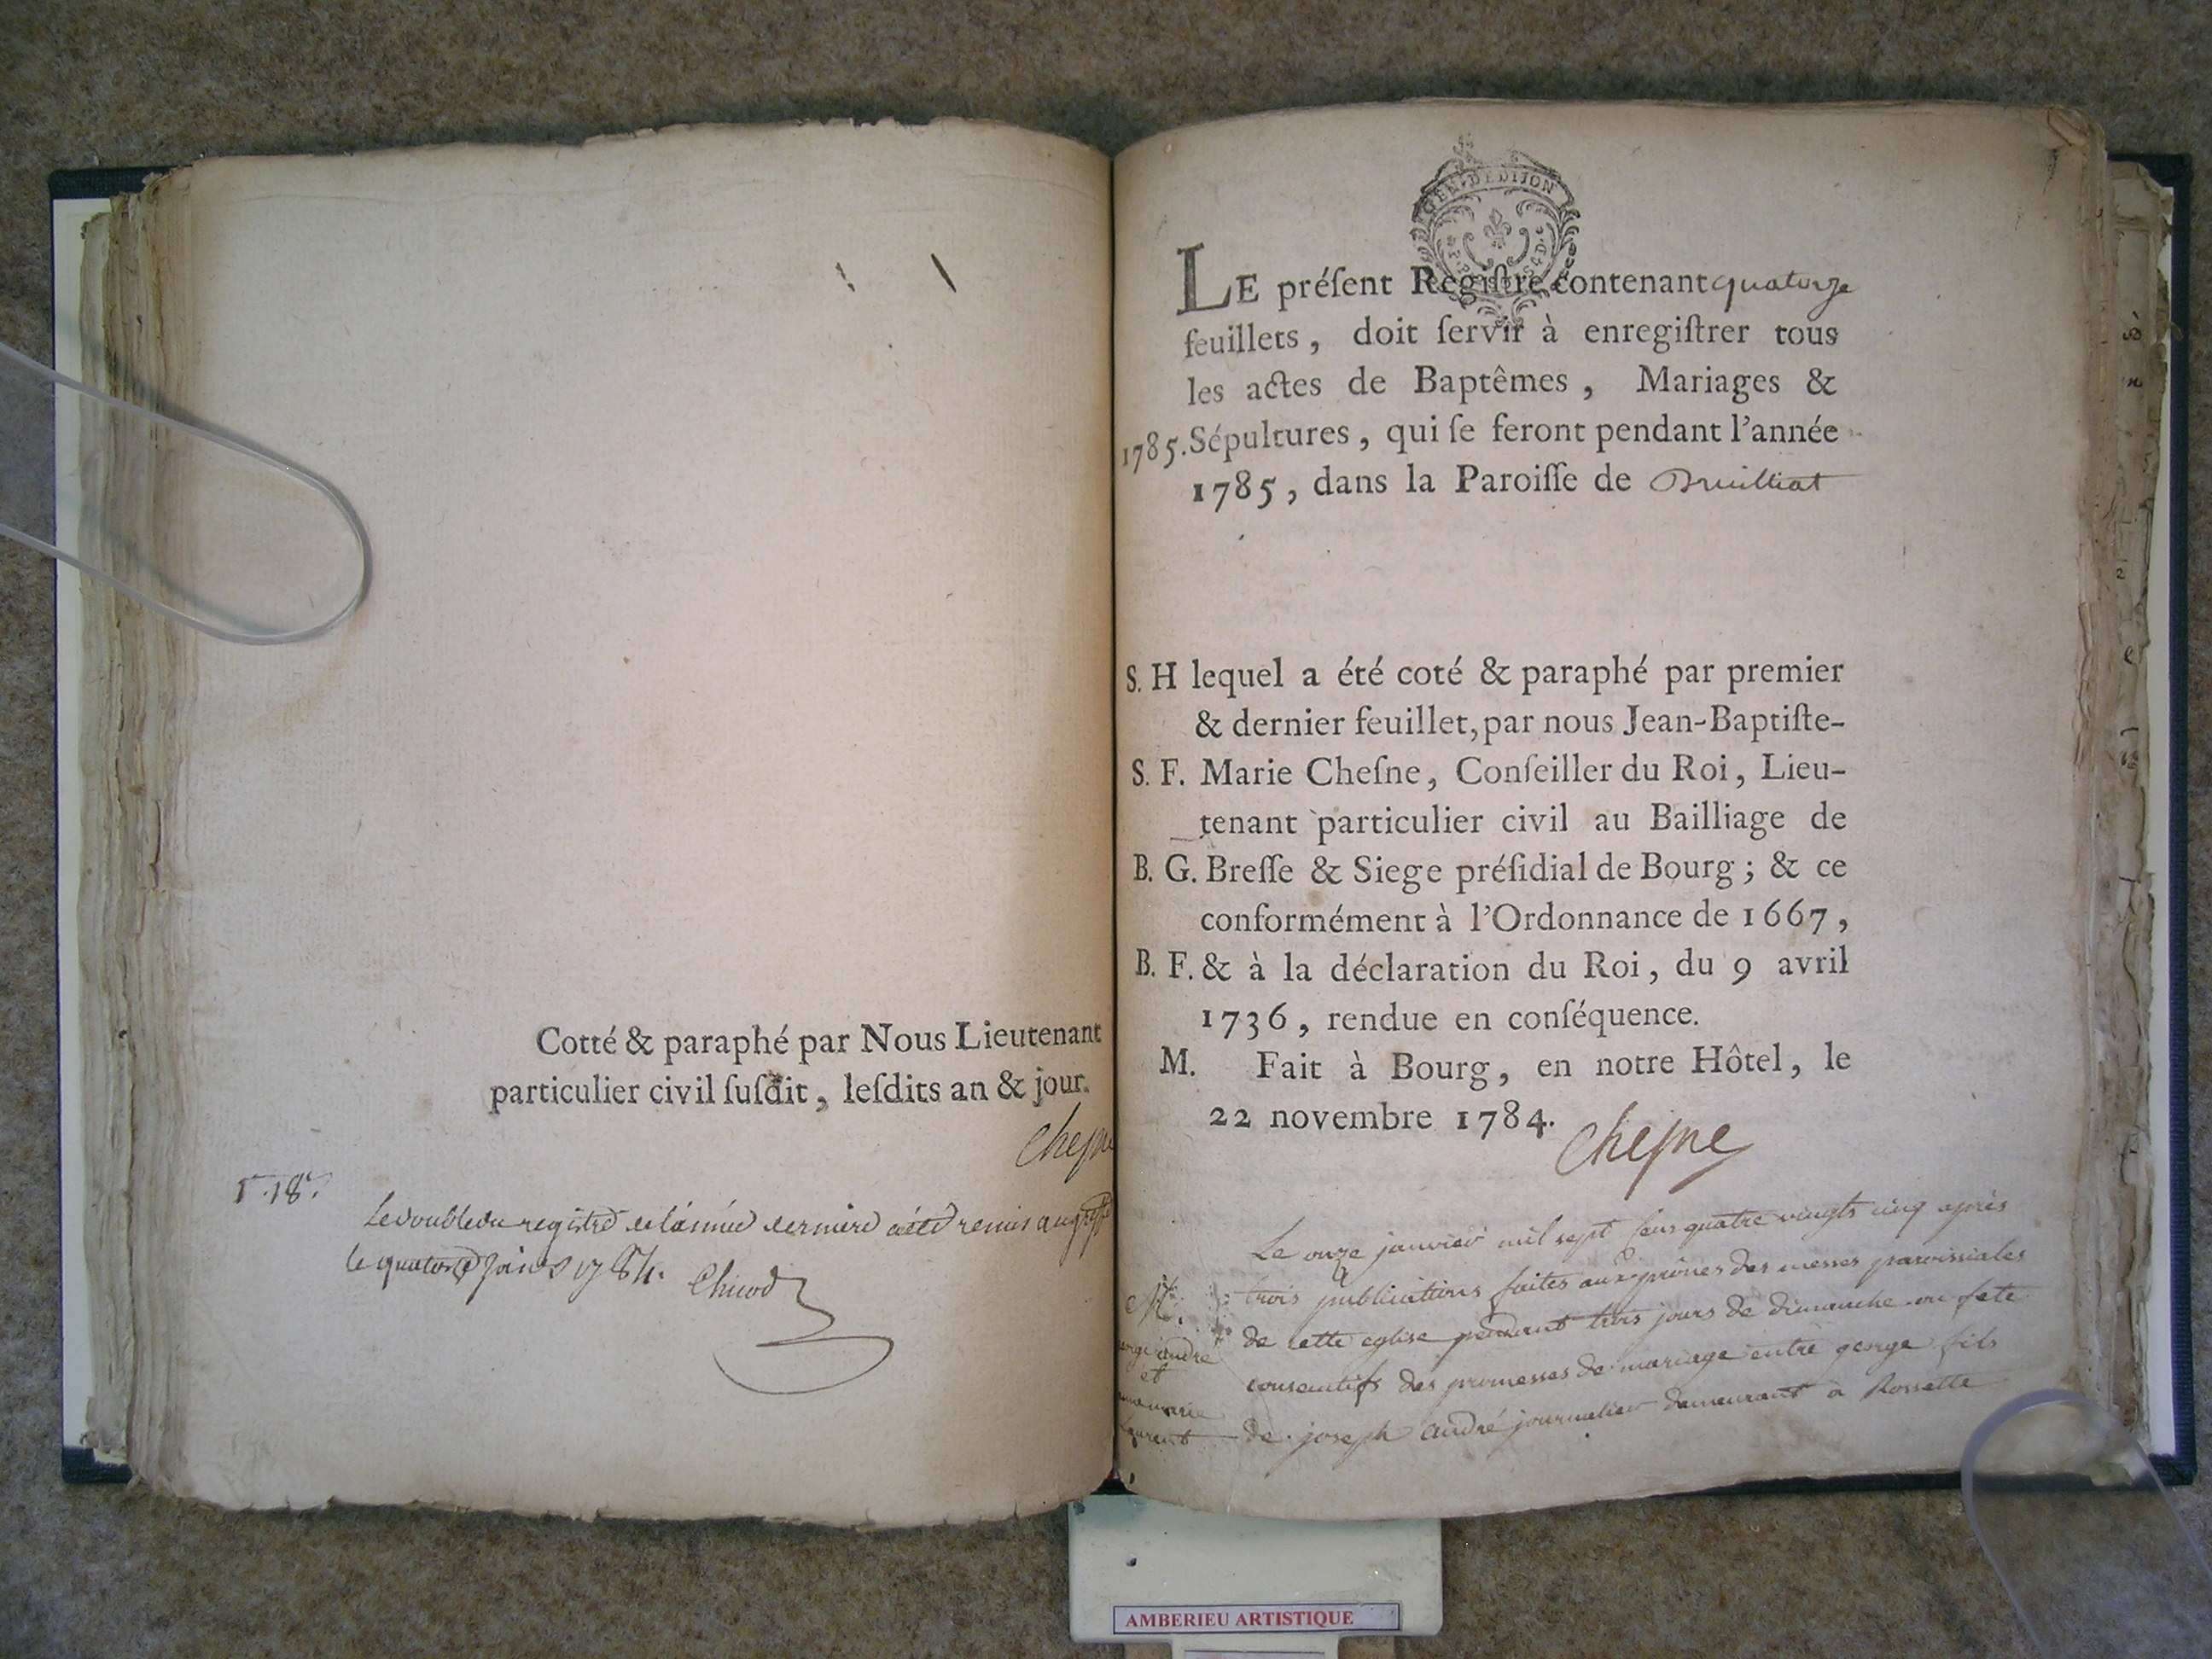 Cotté & paraphé par Nous Lieutenant
particulier civil ſuſdit, leſdits an & jour.
Cheſne
Le double du registre de l'année derniere a été remis au greffe
le quatorze 1784. Chicod
GEN. DE DIJON
LE préſent Regiſtre contenant quatorze
feuillets, doit ſervir à enregiſtrer tous
les actes de Baptêmes, Mariages &
1785. Sépultures, qui ſe feront pendant l'année
1785, dans la Paroiſſe de Druilliat
S. H lequel a été coté & paraphé par premier
& dernier feuillet, par nous Jean-Baptiſte-
S. F. Marie Cheſne, Conſeiller du Roi, Lieu-
tenant particulier civil au Bailliage de
B. G. Breſſe & Siege préſidial de Bourg; & ce
conformément à l'Ordonnance de 1667,
B. F. & à la déclaration du Roi, du 9 avril
1736, rendue en conſéquence.
M. Fait à Bourg, en notre Hôtel, le
22 novembre 1784.
Cheſne
Le onze janvier mil sept cens quatre vingts cinq après
trois publications faites aux prônes des messes paroissiales
de cette eglise pendant trois jours de dimanche ou fete
consecutifs des promesses de mariage entre george fils
de joseph andré journalier demeurant a Rossette
andré
et
marie
laurent
AMBERIEU ARTISTIQUE